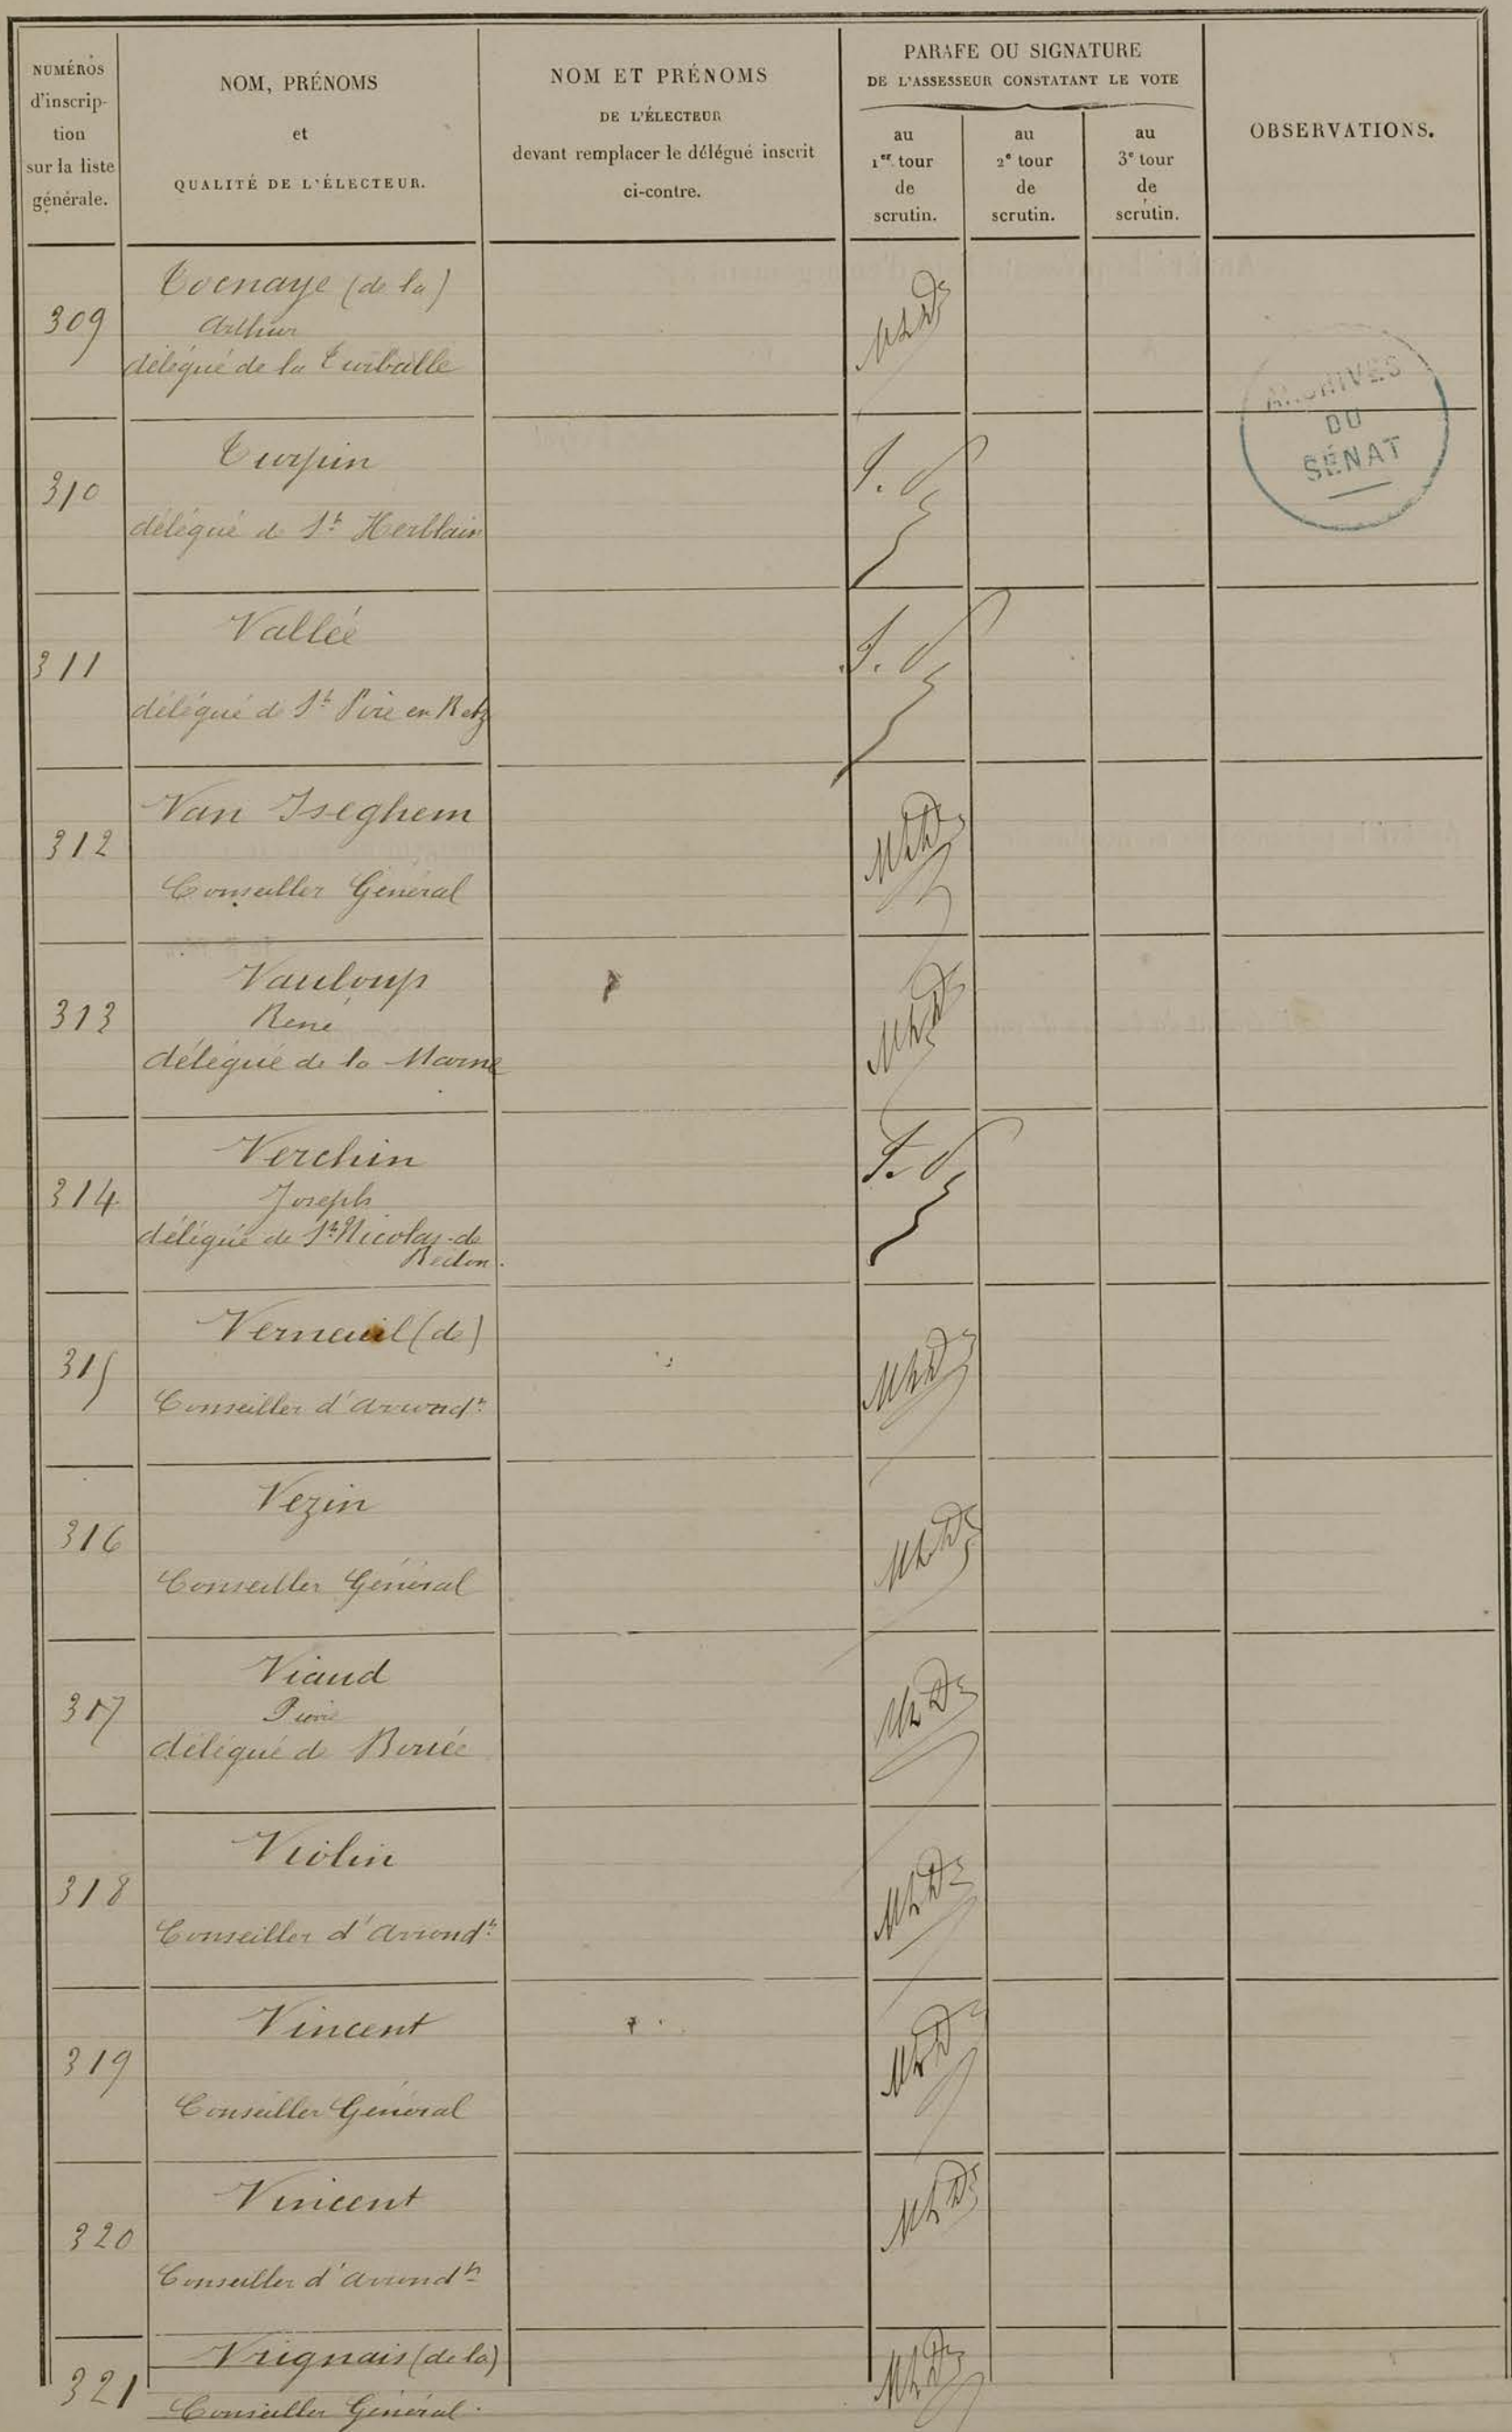 NUMÉROS
d'inscrip-
tion
sur la liste
générale.
NOM, PRÉNOMS
et
QUALITÉ DE L'ÉLECTEUR.
NOM ET PRÉNOMS
DE L'ÉLECTEUR
devant remplacer le délégué inscrit
ci-contre.
PARAFE OU SIGNATURE
DE L'ASSESSEUR CONSTATANT LE VOTE
au
1er tour
de
scrutin.
au
2e tour
de
scrutin.
au
3e tour
de
scrutin.
OBSERVATIONS.
Tocnaye (de la)
309
Arthur
délégué de la Turballe
ARCHIVES
DU
SÉNAT
Turpin
310
délégué de St Herblain
Vallée
311
délégué de St Père en Retz
Van Iseghem
312
Conseiller Général
Vauloup
313
René
délégué de la Marne
Verchin
314
Joseph
délégué de St Nicolas-de
Redon.
Verneuil (de)
315
Conseiller d'arrondt
Vezin
316
Conseiller Général
Viaud
317
Pierre
délégué de Bouée
Violin
318
Conseiller d'arrondt
Vincent
319
Conseiller Général
Vincent
320
Conseiller d'arrondt
Vrignais (de la)
321
Conseiller Général.